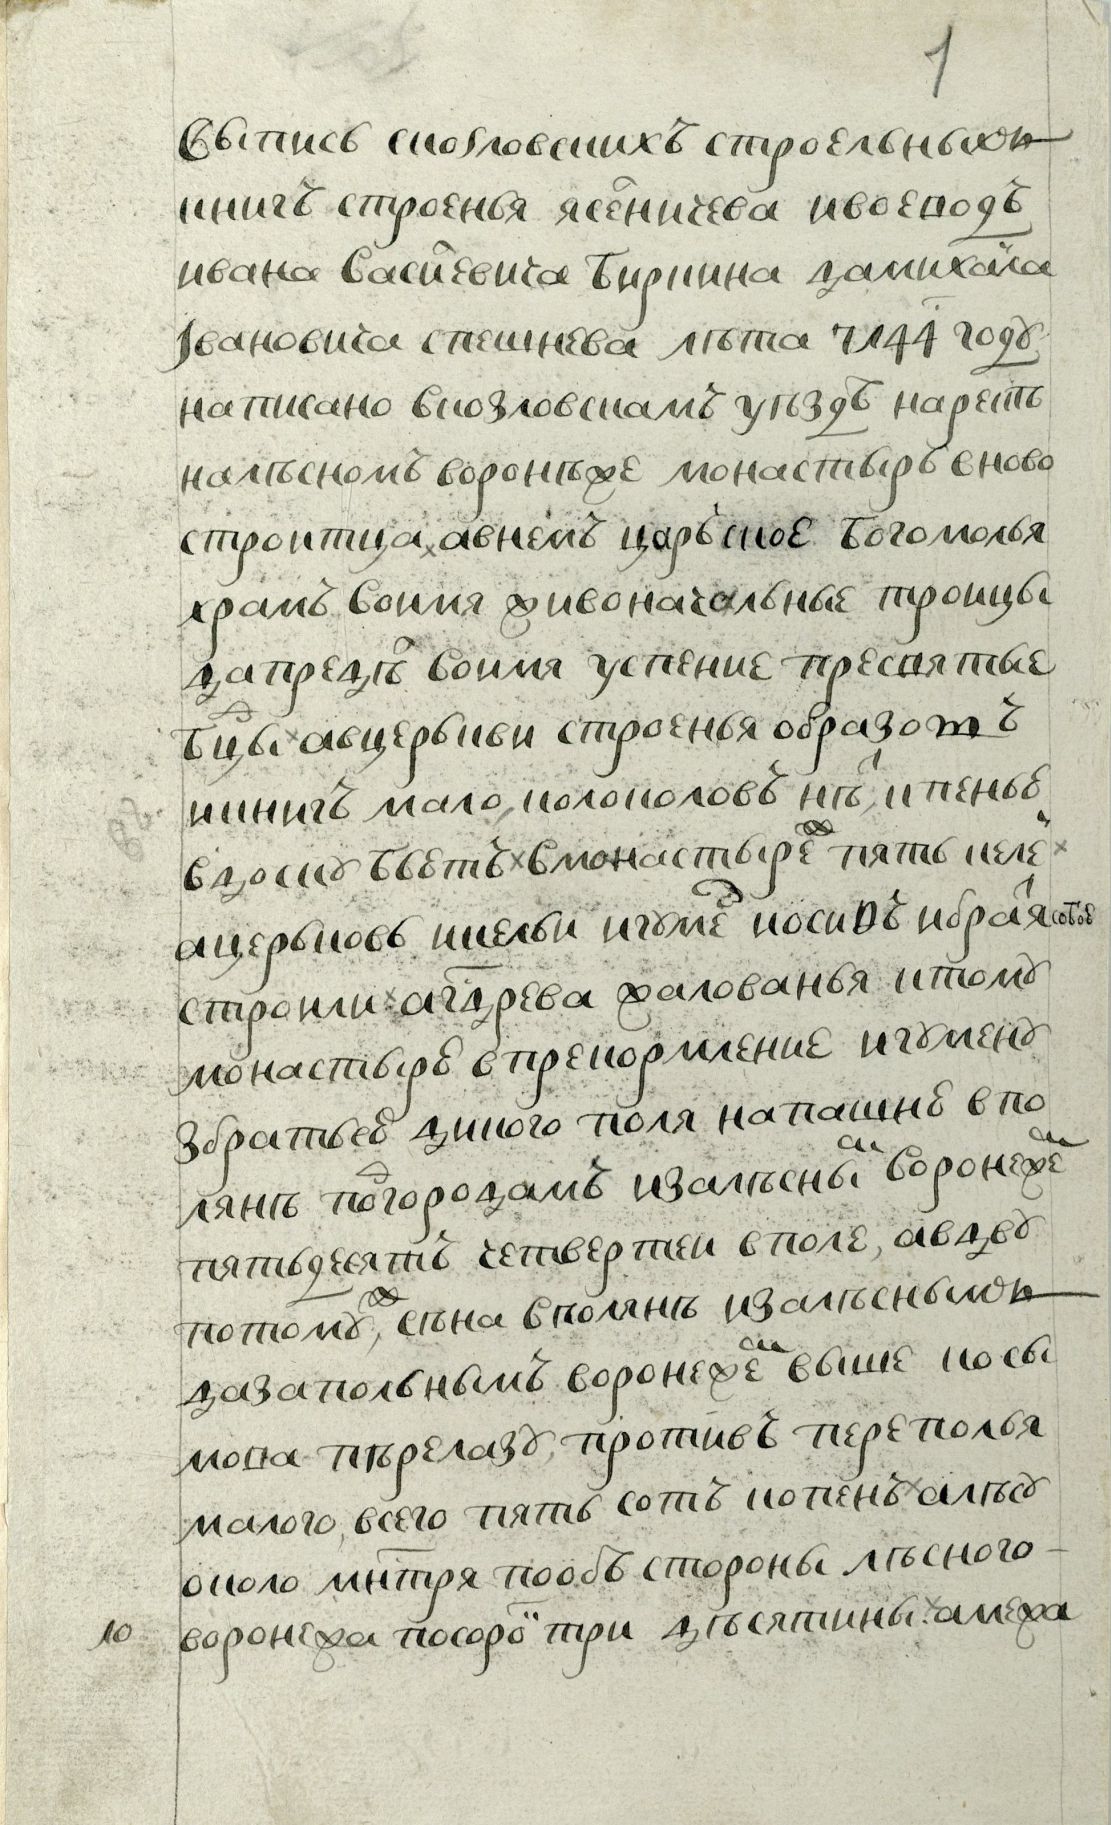 1
Выпись скозловскихъ строельныхъ
книгъ строенья ясеничева и воеводъ
ивана Василевича Биркина дамихаила
Ивановича спешнева лѣта 7144 году
написано вкозловскамъ уѣздѣ нарекѣ
налѣсномъ воронѣже монастырь вново
строитца, авнемъ царьское Богомолья
храмъ воимя живоначальные троицы
дапредѣл воимя успение пресвятые
Бцы авцерькви строенья образовъ
икнигъ мало, колоколовъ нѣт, и пенье
вдоску бьетъ вмонастырѣ пять келеи
ацерьковь икельи игумен иосивъ ибратя собое
строили агдрева жалованья итому
монастырю впрекормление игумену
збратьею дикого поля напашню впо
лянѣ погородамъ изалѣсным воронежем
пятьдесятъ четвертеи вполе, авдву
потомуж, сѣна вполянѣ изалѣснымъ
дазапольнымъ воронежем выше косы
мова пѣрелазу, противъ переполья
малого, всего пять сотъ копенъ алѣсу
около мнтря пообѣ стороны лѣсного
10 воронежа посороку три дѣсятины амежа